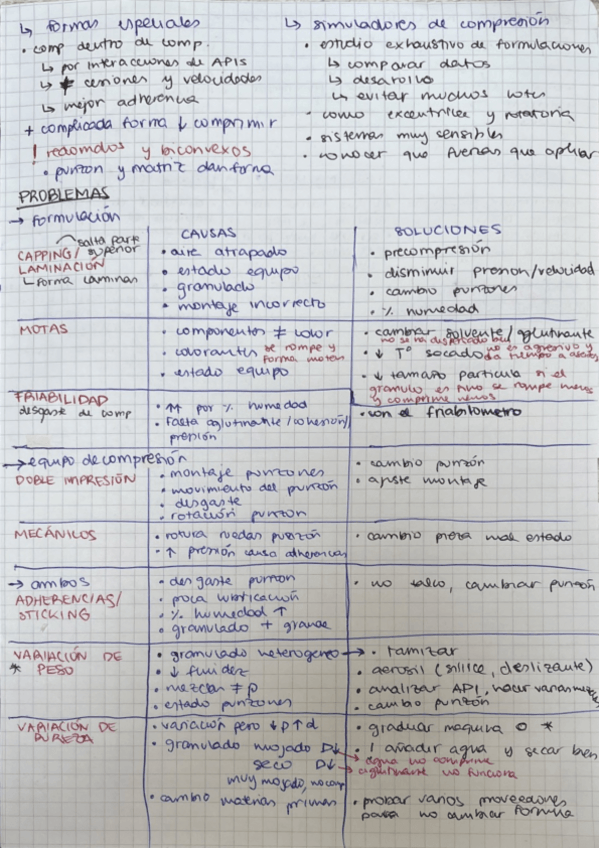 ↳ formas especiales
• comp dentro de comp.
↳ por interacciones de APIs
↳ ≠ cesiones y velocidades
↳ mejor adherencia
+ complicada forma ↓ comprimir
! redondos y biconvexos
• punzon y matriz dan forma
↳ simuladores de compresión
• estudio exhaustivo de formulaciones
↳ comparar datos
↳ desarrollo
↳ evitar muchos lotes
• como excentrica y rotatoria
• sistemas muy sensibles
• conocer que fuerzas que aplicar
PROBLEMAS
→ formulación
CAUSAS
SOLUCIONES
salta parte
superior
CAPPING/
LAMINACIÓN
↳ forma laminas
• aire atrapado
• estado equipo
• granulado
• montaje incorrecto
• precompresión
• disminuir presion/velocidad
• cambio punzones
• % humedad
MOTAS
• componentes ≠ color
• colorantes se rompe y
forma motas
• estado equipo
• cambiar solvente/aglutinante
no se ha dispersado bien
• ↓ Tº secado no es agresivo y
da tiempo a
• ↓ tamaño particula si el
granulo es fino se rompe menos
y comprime menos
FRIABILIDAD
desgaste de comp
• ↑↑ por % humedad
• Falta aglutinante/cohesión/
presión
• con el friabilometro
→ equipo de compresión
DOBLE IMPRESIÓN
• montaje punzones
• movimiento del punzón
• desgaste
• rotación punzon
• cambio punzón
• ajuste montaje
MECÁNICOS
• rotura ruedas punzón
• ↑ presión causa adherencias
• cambio pieza mal estado
→ ambos
ADHERENCIAS/
STICKING
• desgaste punzon
• poca lubricación
• % humedad ↑
• granulado + grande
• no talco, cambiar punzón
VARIACIÓN DE
* PESO
• granulado heterogeneo →
• ↓ fluidez
• mezclar ≠ ρ
• estado punzones
• tamizar
• aerosil (sílice, deslizante)
• analizar API, hacer varias mezclas
• cambio punzón
VARIACIÓN DE
DUREZA
• variación peso ↓p↑d
• granulado mojado D↓
seco D↓
muy mojado, no comp
• cambio materias primas
• graduar maquina o *
• 1 añadir agua y secar bien
→ agua no comprime
→ aglutinante no funciona
• probar varios proveedores
para no cambiar formula